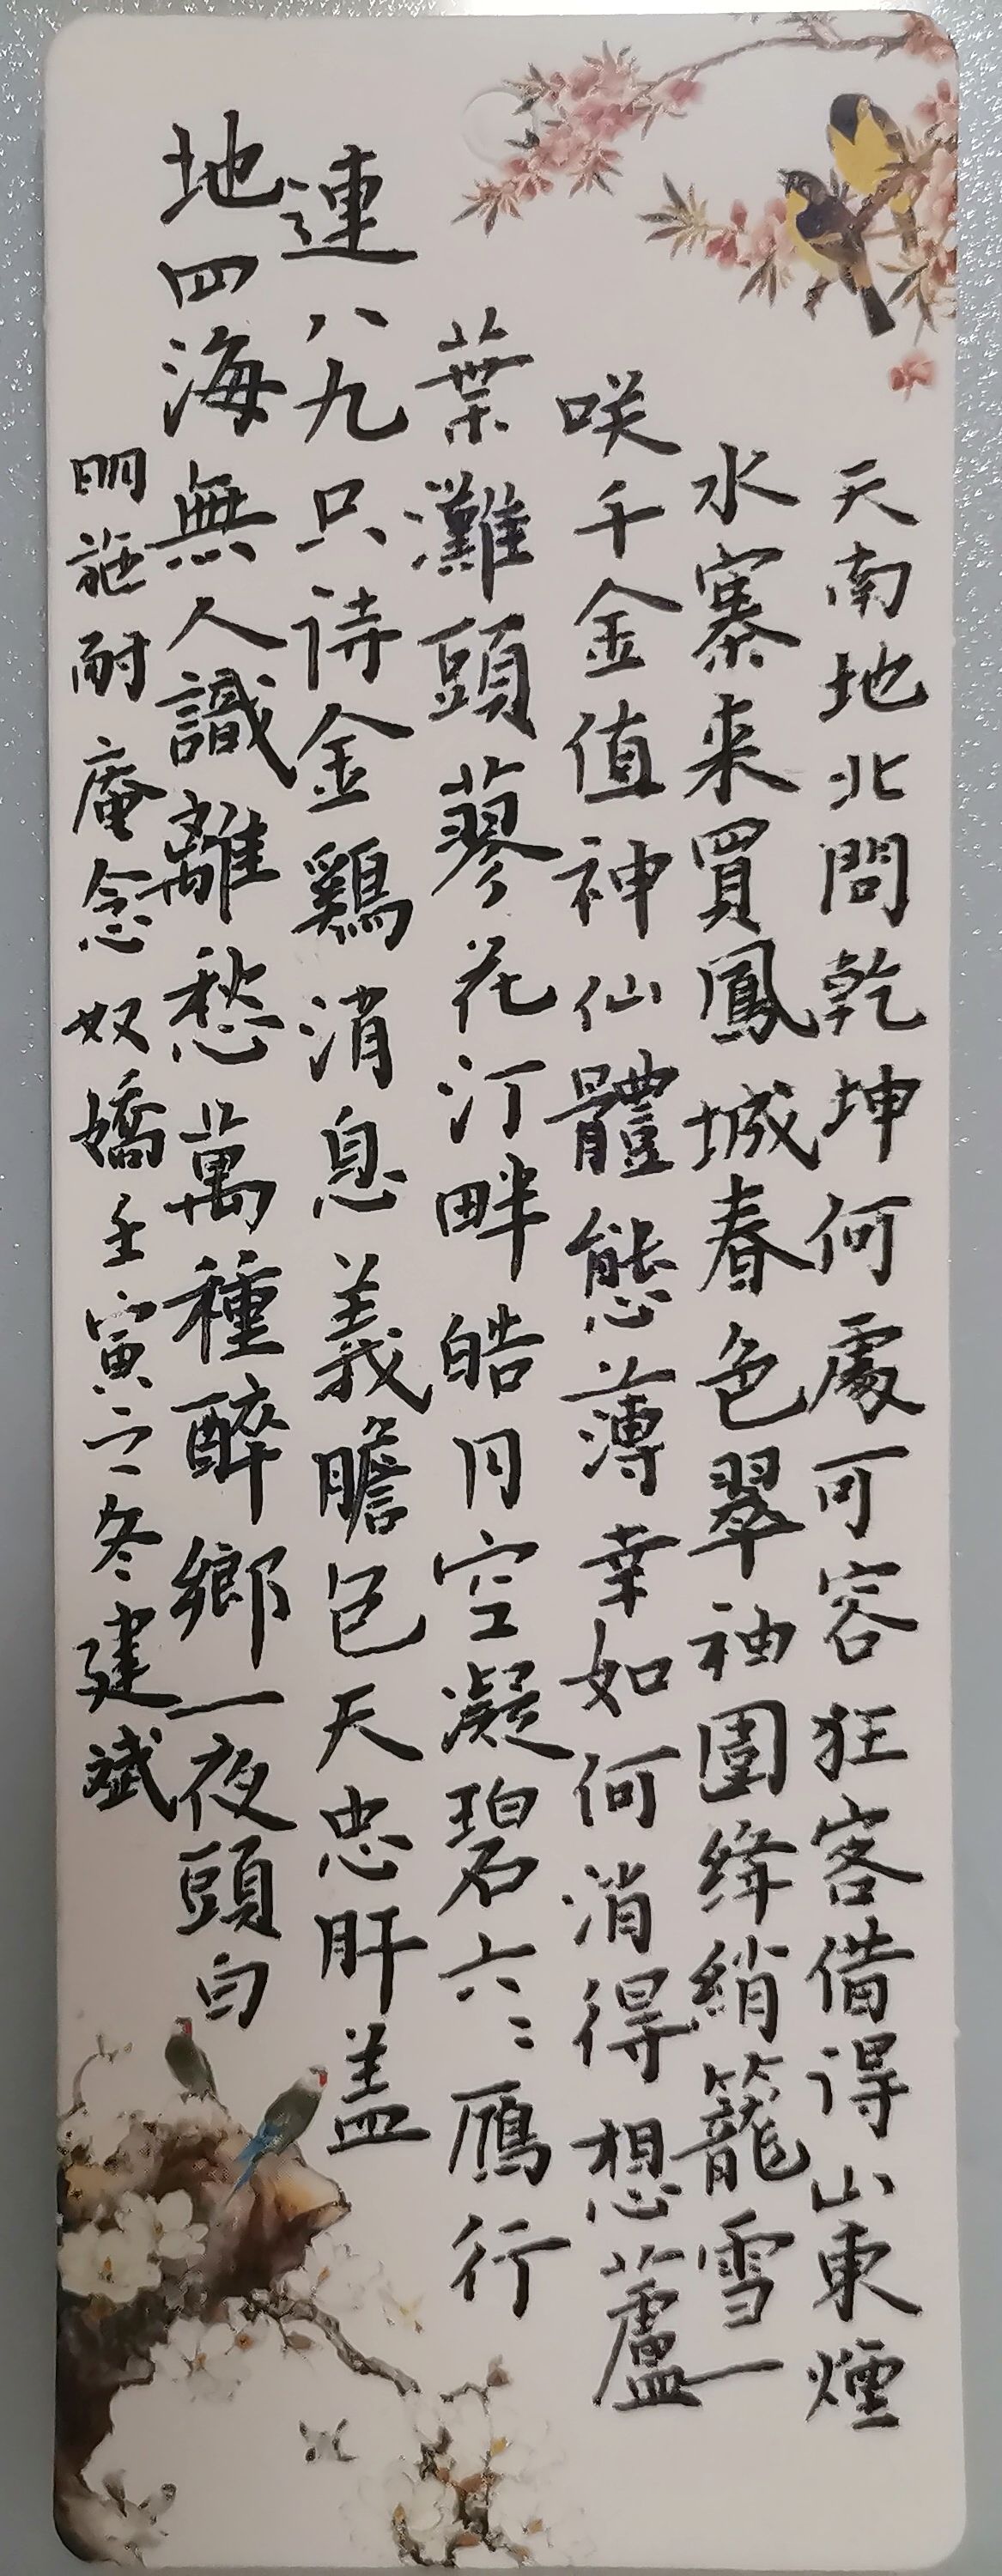 天南地北問乾坤何處可容狂客借得山東煙
水寨来買鳳城春色翠袖圍絳綃籠雪一
咲千金值神仙體態薄幸如何消得想蘆
葉灘頭蓼花汀畔皓月空凝碧六六鴈行
連八九只待金鷄消息義膽包天忠肝盖
地四海無人識離愁萬種醉鄉一夜頭白
明施耐庵念奴嬌壬寅之冬建斌